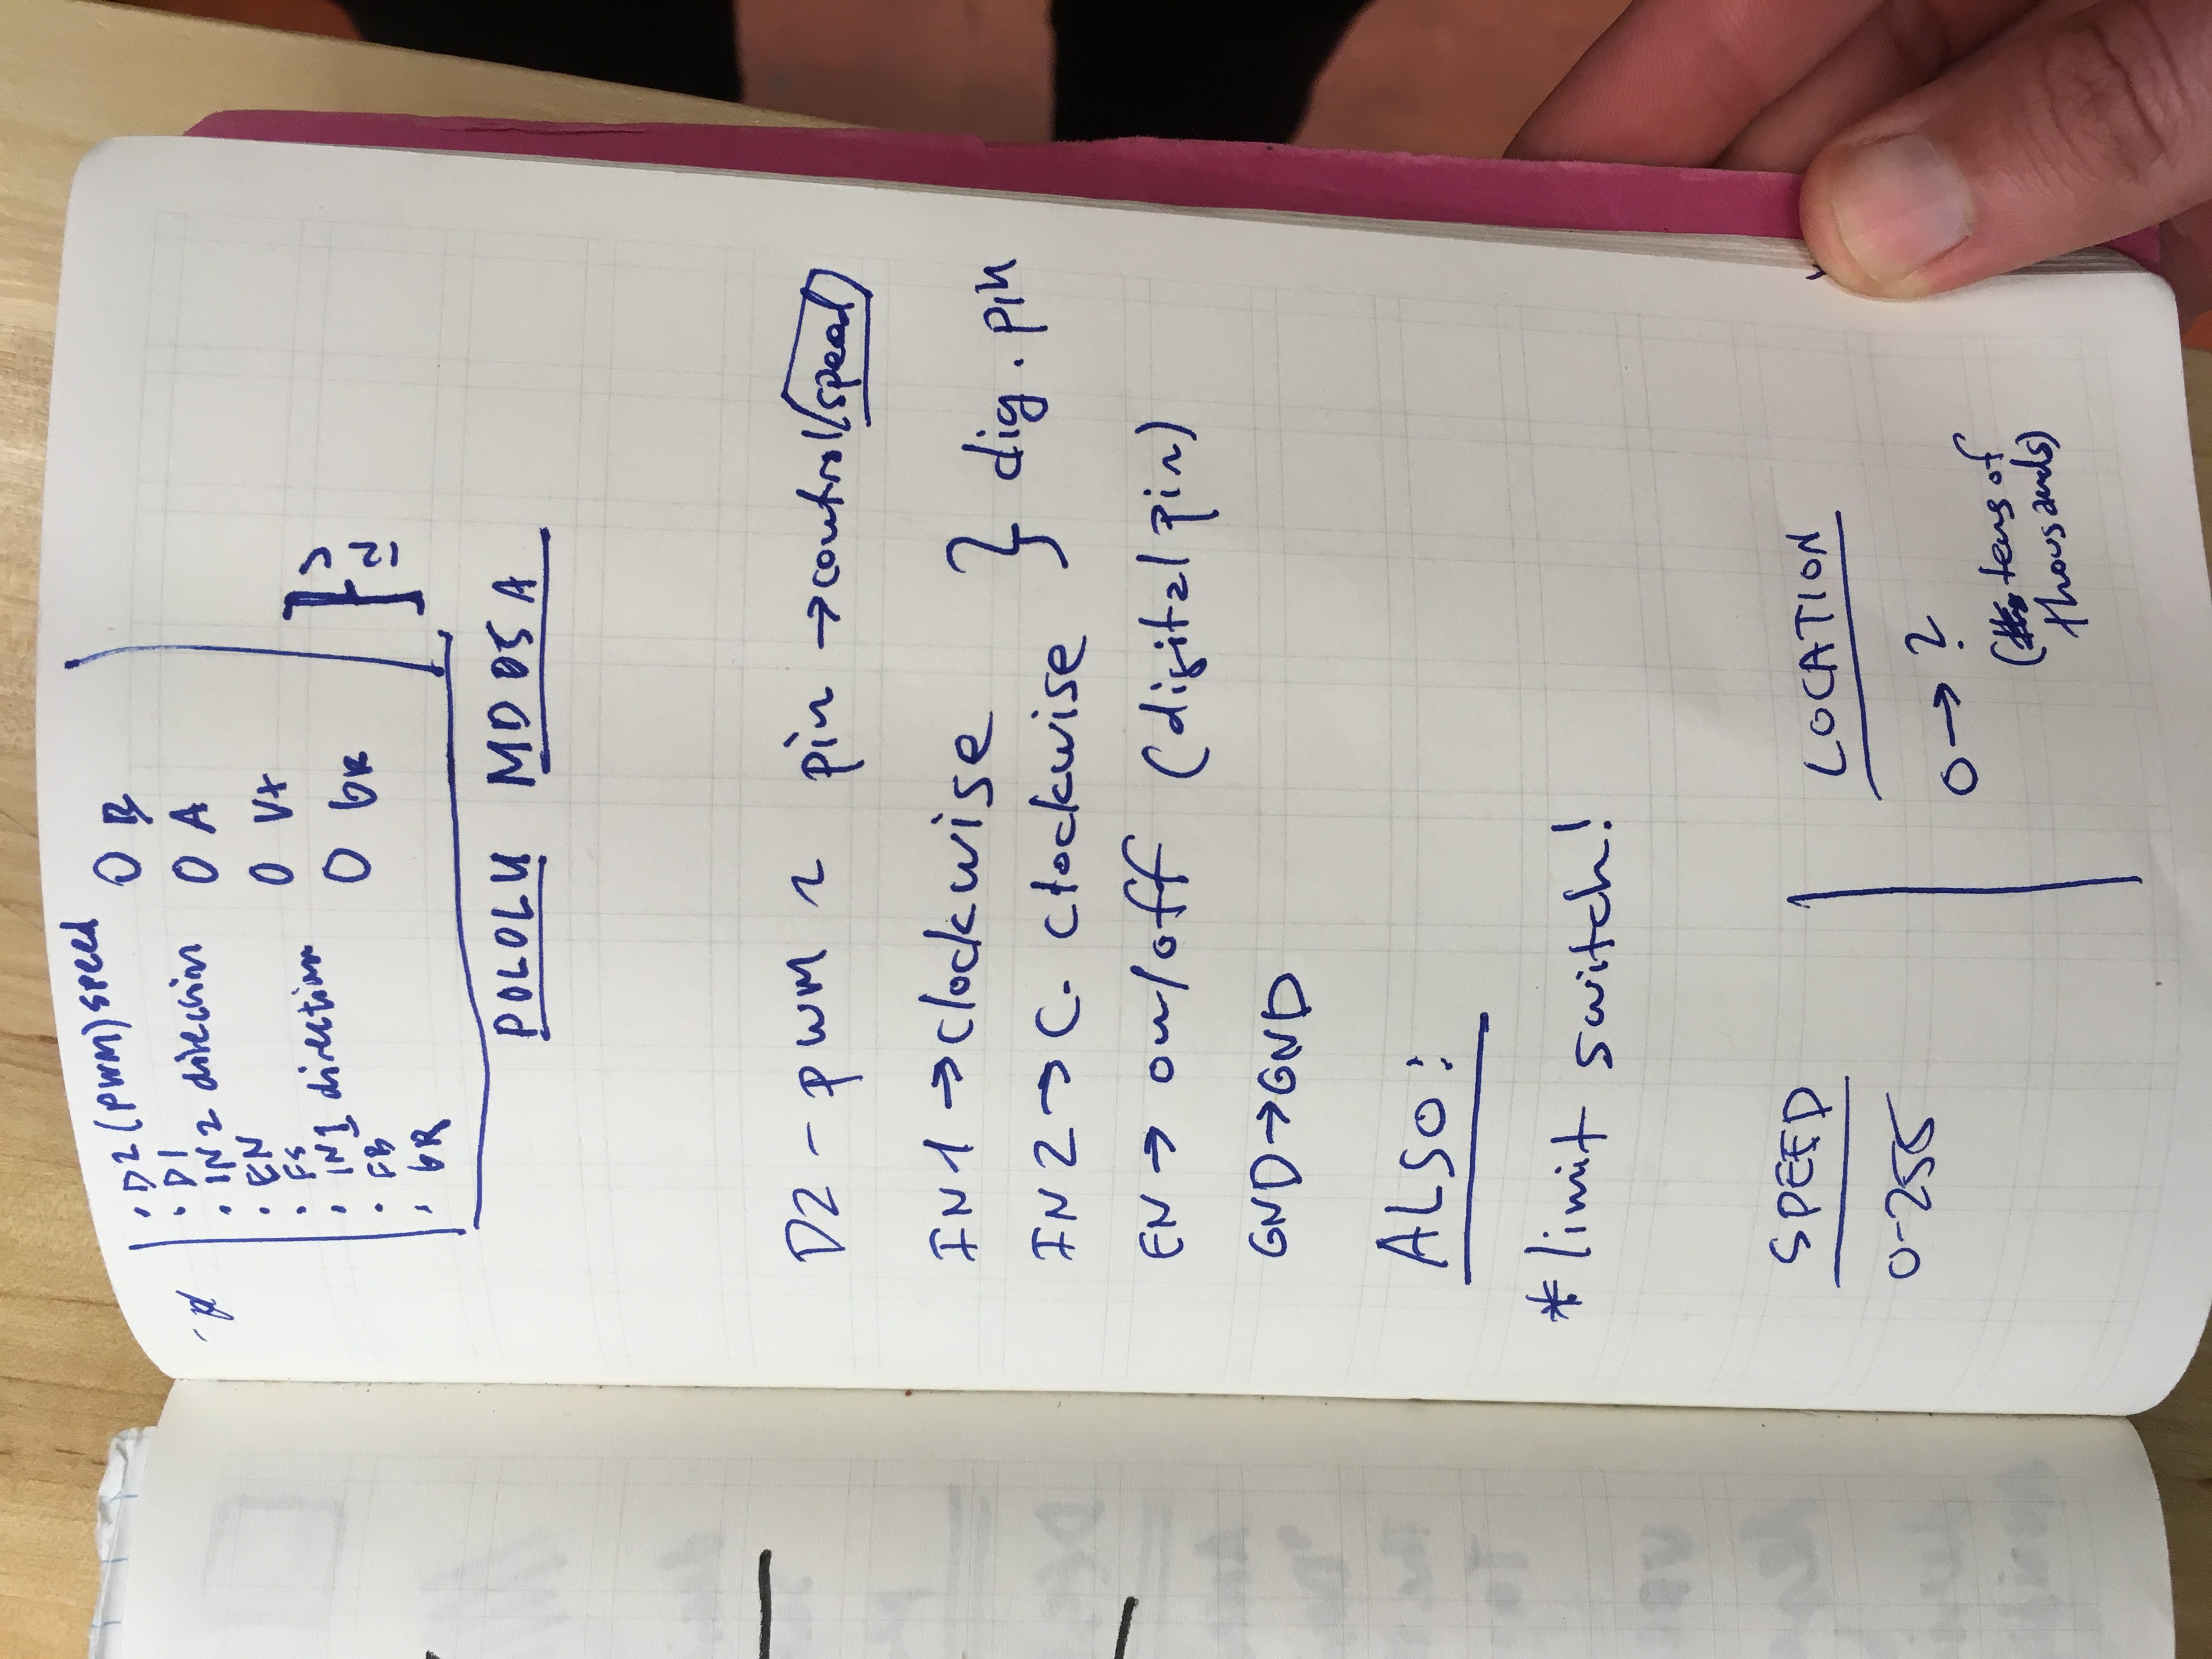 · D2 (PWM) speed O B
· D1
· IN2 direction O A
· EN
· FS O V+
· IN1 direction
· FB O GR
· GR
12 V
POLOLU MD05A
D2 - PWM ~ pin → control speed
IN1 → clockwise
} dig. pin
IN2 → C. clockwise
EN → on/off (digital pin)
GND → GND
ALSO:
* limit switch!
SPEED
0-255
LOCATION
0 → ?
(tens of
thousands)